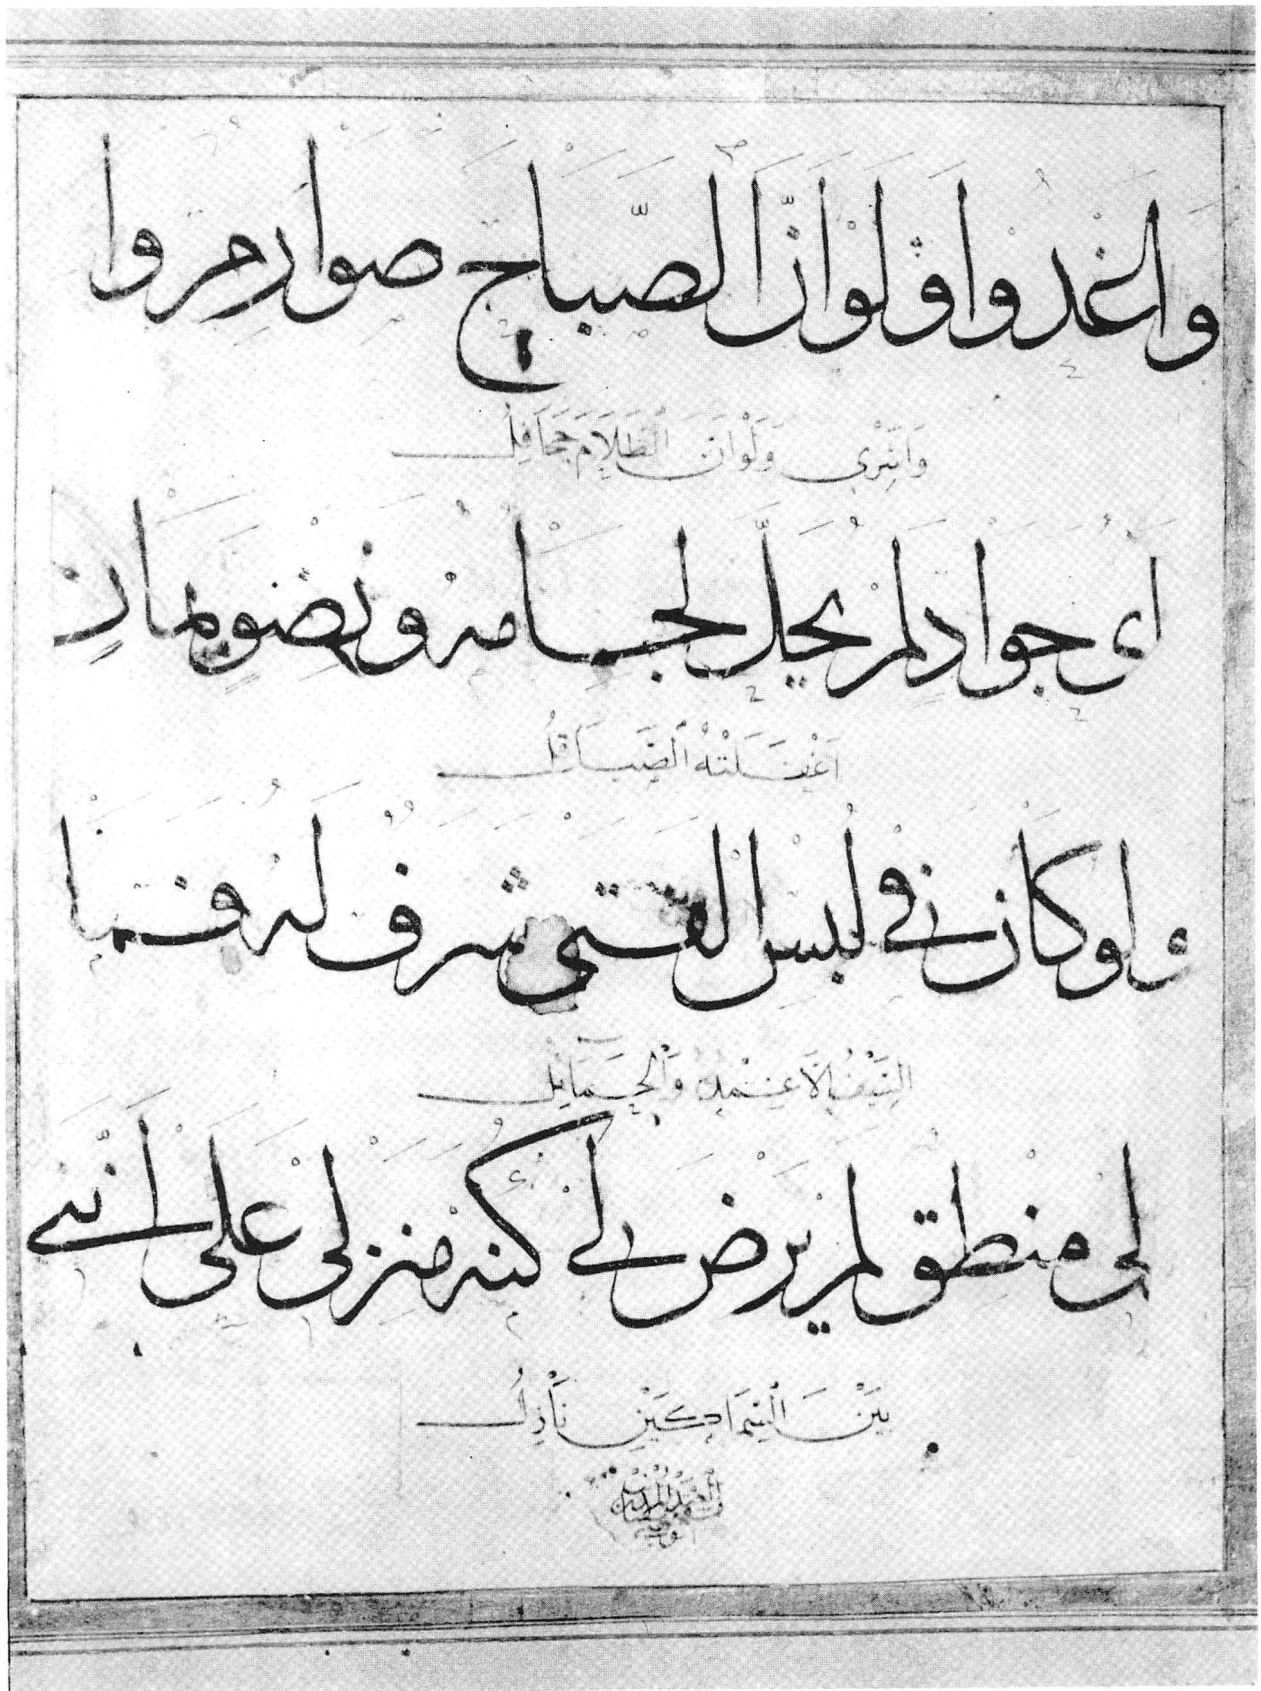 واغدوا ولو انّ الصّباح صوارم وا
وَاَسْرِي وَلَوْ اَنَّ الظَّلَامَ جَحَافِلُ
اى جواد لم يحلّ لجامه ونضو يمان
اَغْفَلَتْهُ الصَّيَاقِلُ
ولو كان فى لبس الفتى شرف له فما
السَّيْفُ اِلَّا غِمْدُهُ وَالْحَمَايِلُ
لى منطق لم يرض لى كنه منزلى على انّنى
بَيْنَ السِّمَاكَيْنِ نَازِلُ
العبد المذنب